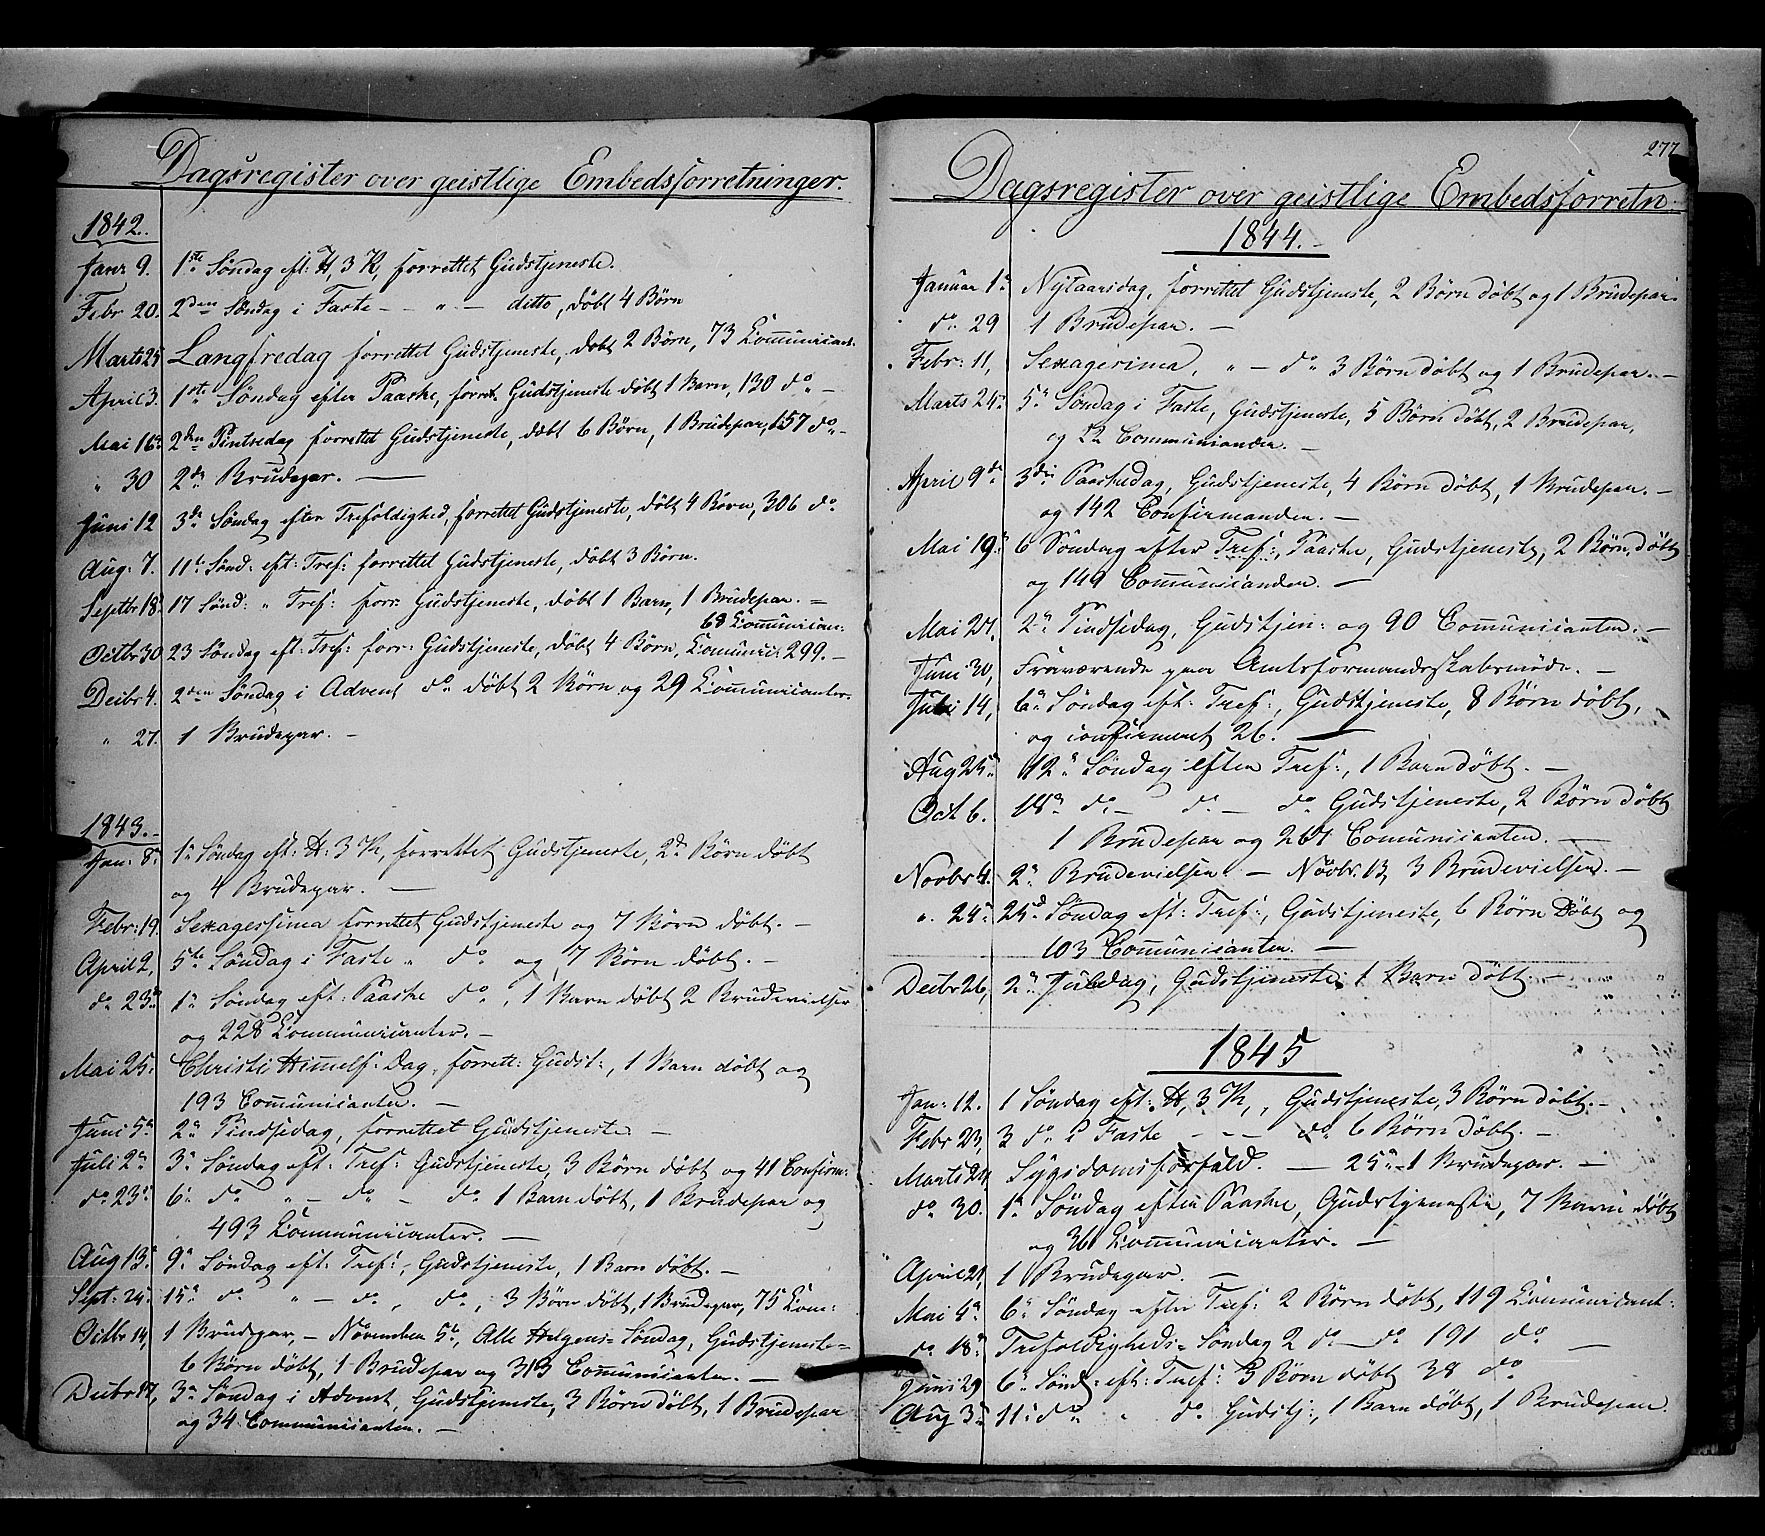 Dagsregister over geistlige Embedsforretninger.
1842.
Janr 9. 1ste Søndag eft: H, 3 K, forrettet Gudstjeneste.
Febr 20. 2den Søndag i Faste - - " - ditto, døbt 4 Børn
Marts 25 Langfredag forrettet Gudstjeneste, døbt 2 Børn, 73 Communicant.
April 3. 1ste Søndag efter Paaske, forret. Gudstjeneste døbt 1 Barn, 130 do -
Mai 16. 2den Pintsedag forrettet Gudstjeneste, døbt 6 Børn, 1 Brudepar, 157 do -
" 30 2de Brudepar. —
Juni 12 3die Søndag efter Trefoldighed, forrettet Gudstjeneste, døbt 4 Børn, 306 do
Aug: 7. 11te Sønd: eft: Tref: forrettet Gudstjeneste, døbt 3 Børn.
Septbr 18. 17 Sønd: " Tref: forr: Gudstjeneste, døbt 1 Barn, 1 Brudepar. =
68 Communican:
Octbr 30 23 Søndag eft: Tref: forr: Gudstjeneste, døbt 4 Børn, Comunic: 299. -
Decbr 4. 2den Søndag i Advent do døbt 2 Børn og 29 Communicanter.
" 27. 1 Brudepar. -
1843. -
Jan: 8. 1ste Søndag eft: H: 3 K, forrettet Gudstjeneste, 2de Børn døbt
og 4 Brudepar. —
Febr: 19. Sexagessima forrettet Gudstjeneste og 7 Børn døbt. -
April 2, 5te Søndag i Faste " do og 7 Børn døbt. -
do 23. 1ste Søndag eft: Paaske do, 1 Barn døbt 2 Brudevielser
og 228 Communicanter. -
Mai 25. Christi Himmelf: Dag, forrett: Gudst:, 1 Barn døbt og
193 Comunicanter. -
Juni 5. 2den Pindsedag, forrettet Gudstjeneste -
Juli 2. 3die Søndag eft: Tref: Gudstjeneste, 3 Børn døbt og 41 Confirm:
do 23. 6te do " - do - do 1 Barn døbt, 1 Brudepar og
493 Communicanter. -
Aug 13. 9de Søndag eft: Tref:, Gudstjeneste, 1 Barn døbt. -
Sept: 24. 15de do " - do, do, 3 Børn døbt, 1 Brudepar, 75 Com:
Octbr 14, 1 Brudepar, - November 5te, Alle Helgens Søndag, Gudstjeneste =
6 Børn døbt, 1 Brudepar og 313 Communicanter. -
Decbr 17, 3die Søndag i Advent, Gudstjeneste, 3 Børn døbt, 1 Brudepar
og 34 Communicanter. -
277
Dagsregister over geistlige Embedsforretn:
1844. -
Januar 1. Nytaarsdag, forrettet Gudstjeneste, 2 Børn døbt og 1 Brudepar.
do 29 1 Brudepar. -
Febr: 11, Sexagesima, " - do 3 Børn døbt og 1 Brudepar. -
Marts 24. 5te Søndag i Faste, Gudstjeneste, 5 Børn døbt, 2 Brudepar,
og 22 Communicanter. -
April 9de 3die Paaskedag, Gudstjeneste, 4 Børn døbt, 1 Brudepar. -
og 142 Confirmander. -
Mai 19. 6 Søndag efter Tref:, Paaske, Gudstjeneste, 2 Børn døbt
og 149 Comunicander. -
Mai 27. 2den Pindsedag, Gudstjen: og 90 Comunicanter. -
Juni 30, Fraværende paa Amtsformandsskabsmøde. -
Juli 14, 6te Søndag eft: Tref:, Gudstjeneste, 8 Børn døbt,
og confirmeret 26. -
Aug 25. 12te Søndag eften Tref:, 1 Barn døbt. -
Oct 6. 18de do - do - do Gudstjeneste, 2 Børn døbt
1 Brudepar og 267 Comunicanten. -
Novbr 4. 2de Brudevielser - Novbr. 13 3 Brudevielser. -
". 24. 25de Søndag eft: Tref:, Gudstjeneste, 6 Børn Døbt og
103 Comunicanten. -
Decbr 26, 2den Juledag, Gudstjeneste 1 Barn døbt. -
1845
Jan: 12. 1 Søndag eft: H, 3 K,, Gudstjeneste, 3 Børn døbt. -
Febr 23, 3 do i Faste - - - do 6 Børn døbt. -
Marts 24, Sygdomsforfald. - 25de 1 Brudepar. -
do 30. 1ste Søndag efter Paaske, Gudstjeneste, 7 Børn døbt
og 361 Communicanter. -
April 21, 1 Brudepar. -
Mai 4. 6te Søndag efter Tref: 2 Børn døbt, 119 Comunicant:
do 18. Trefoldigheds= Søndag 2 do - do 191 do -
Juni 29 6te Sønd: eft: Tref: 3 Børn døbt 38 do
Aug 3. 11te do " do Gudstj:, 1 Barn døbt, 1 Brudepar